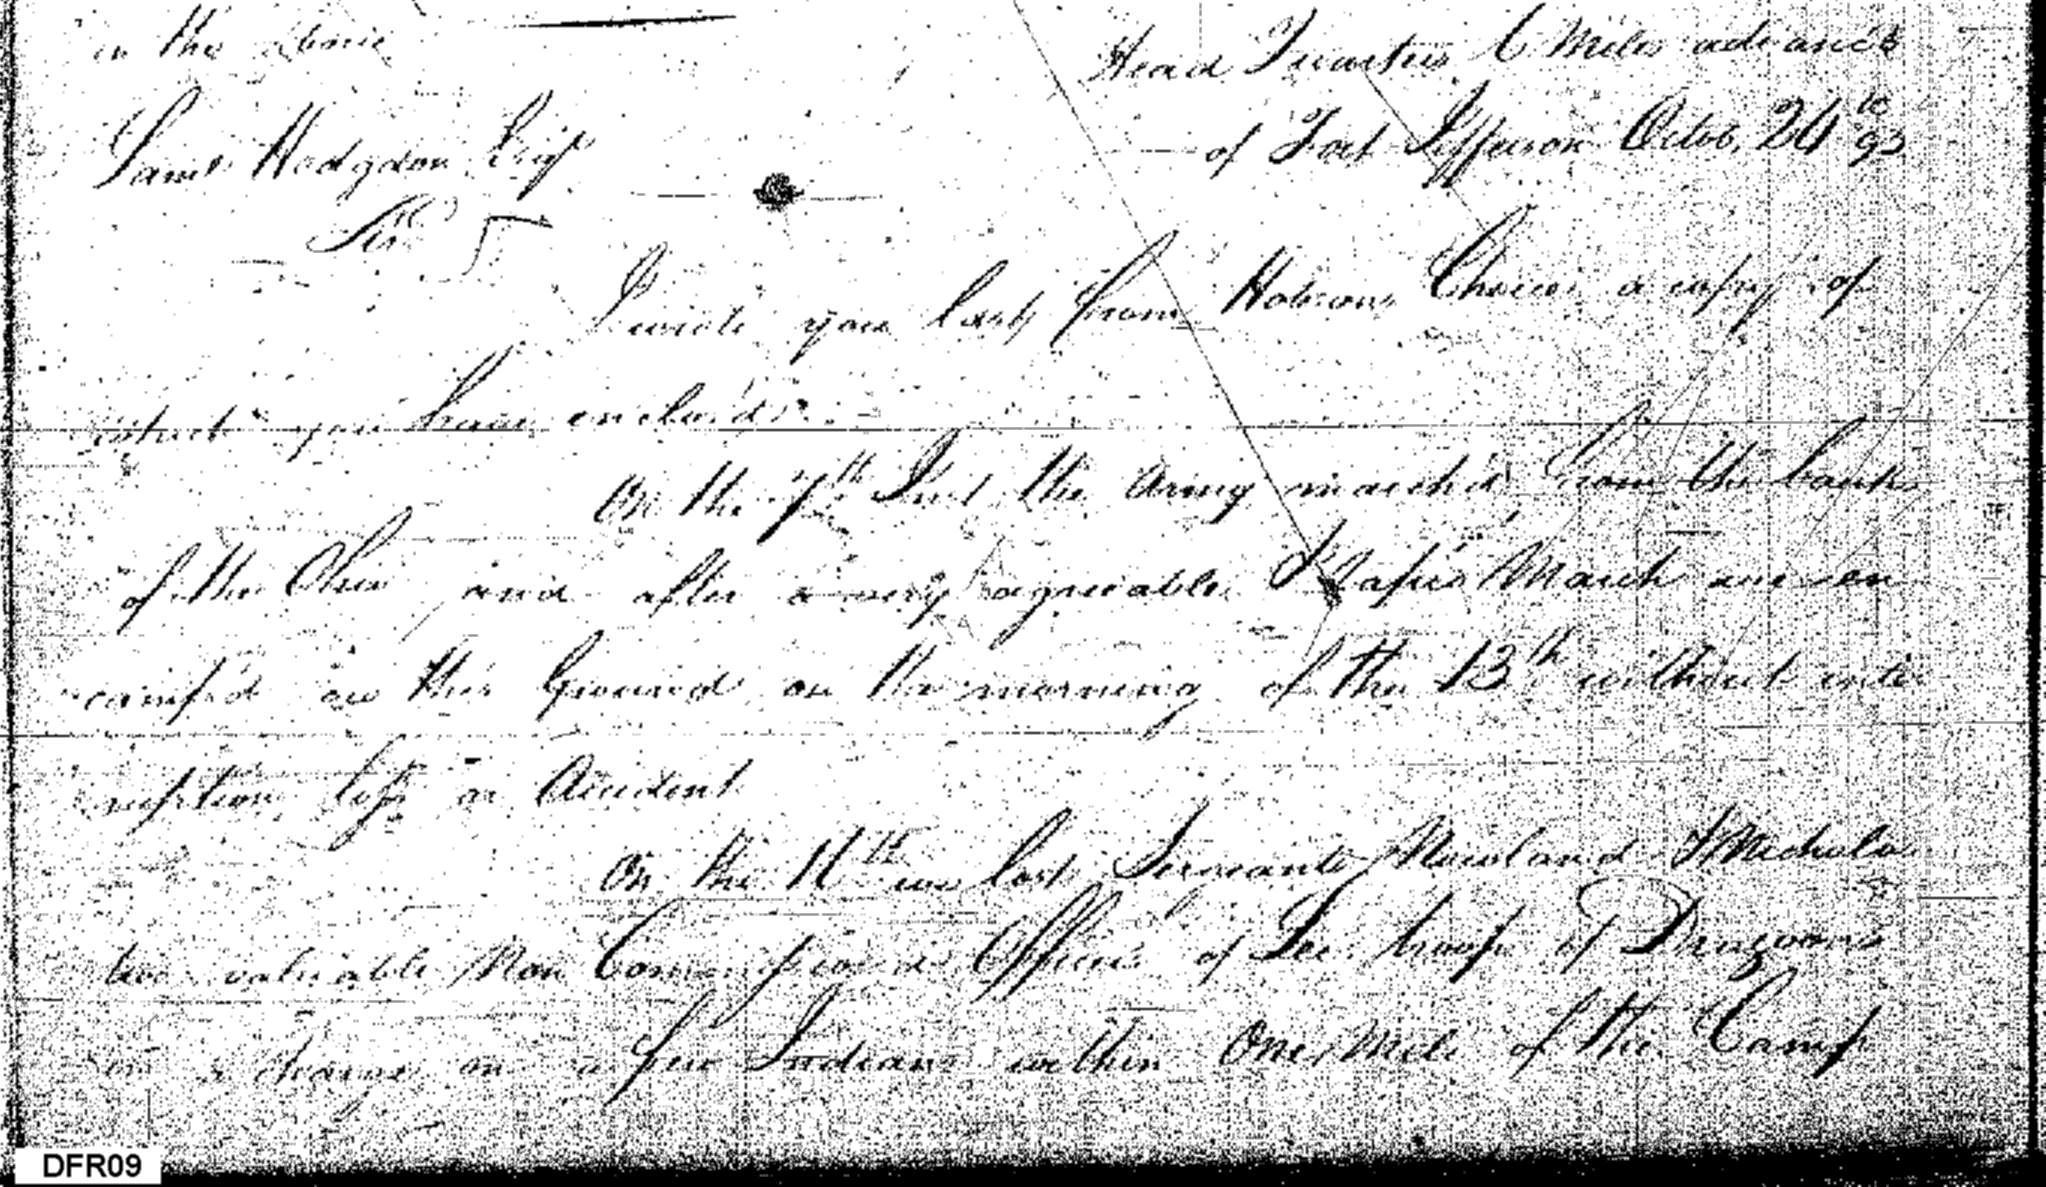 in the above
Head Quarters 6 Miles advance
of Fort Jefferson Octob. 24th 93
Saml Hodgdon Esqr
Sir
I wrote you last from Hobsons Choice a copy of
which you have enclos'd.
On the 7th Inst the Army march'd from the banks
of the Ohio and after a very agreeable & rapid March we en
camp'd on this Ground on the morning of the 13th without inter
ruption loss or Accident
On the we lost Serveants Newland & Nichola
two valuable Non Commissioned Officers of Lee troop of Dragoons
in a charge on a few Indians within One Mile of the Camp
DFR09